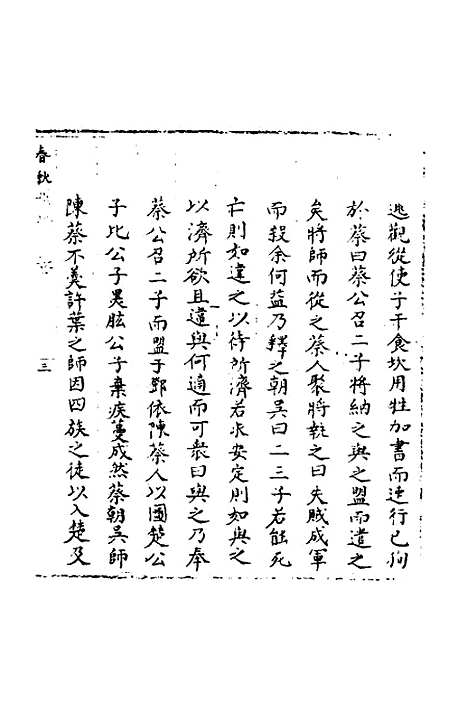 逃觀從使子干食坎用牲加書而速行己徇
於蔡曰蔡公召二子將納之與之盟而遣之
矣將師而從之蔡人聚將執之曰失賊成軍
而殺余何益乃釋之朝吳曰二三子若能死
亡則如違之以待所濟若求安定則如與之
以濟所欲且違與何適而可衆曰與之乃奉
蔡公召二子而盟于鄧依陳蔡人以國楚公
子比公子黑肱公子棄疾蔓成然蔡朝吳師
陳蔡不羹許葉之師因四族之徒以入楚及
春秋
三